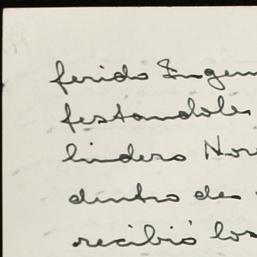 ferido Ingen
festandoles
lindero Nor
dentro de
recibió los